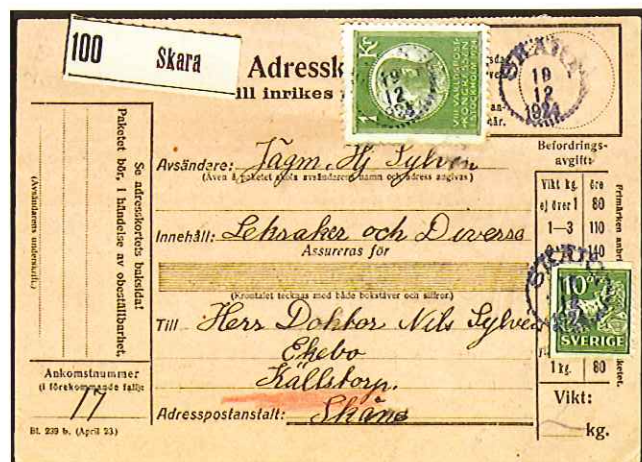 100 Skara
Adressk
ill inrikes
1 Kr
VIII VÄRLDSPOST-
KONGRESSEN
STOCKHOLM 1924
SKARA
19
12
1924
Avsändare: Jägm. Hj Sylvén
(Även å paketet skola avsändarens namn och adress angivas)
Innehåll: Leksaker och Diverse
Assureras för
(Krontalet tecknas med både bokstäver och siffror.)
Till Herr Doktor Nils Sylvén
Ekebo
Källstorp.
Adresspostanstalt: Skåne
Se adresskortets baksida!
Paketet bör, i händelse av obeställbarhet,
(Avsändarens underskrift.)
Ankomstnummer
(i förekommande fall):
77
Bl. 239 b. (April 23.)
Befordrings-
avgift:
Vikt kg. öre
ej över 1 80
1—3 110
140
SKARA
10
SVERIGE
1 kg. 80
Vikt:
kg.